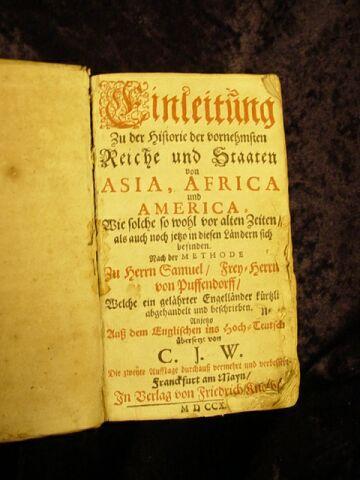 Einleitung
Zu der Historie der vornehmsten
Reiche und Staaten
von
ASIA, AFRICA
und
AMERICA,
Wie solche so wohl vor alten Zeiten/
als auch noch jetzo in diesen Ländern sich
befinden.
Nach der METHODE
Zu Herrn Samuel/ Frey-Herrn
von Puffendorff/
Welche ein gelährter Engelländer kürtzli
abgehandelt und beschrieben.
Anjetzo
Auß dem Englischen ins Hoch-Teutsch
übersetzt von
C. J. W.
Die zweyte Aufflage durchauß vermehrt und verbessert
Franckfurt am Mayn/
In Verlag von Friedrich
MDCCX